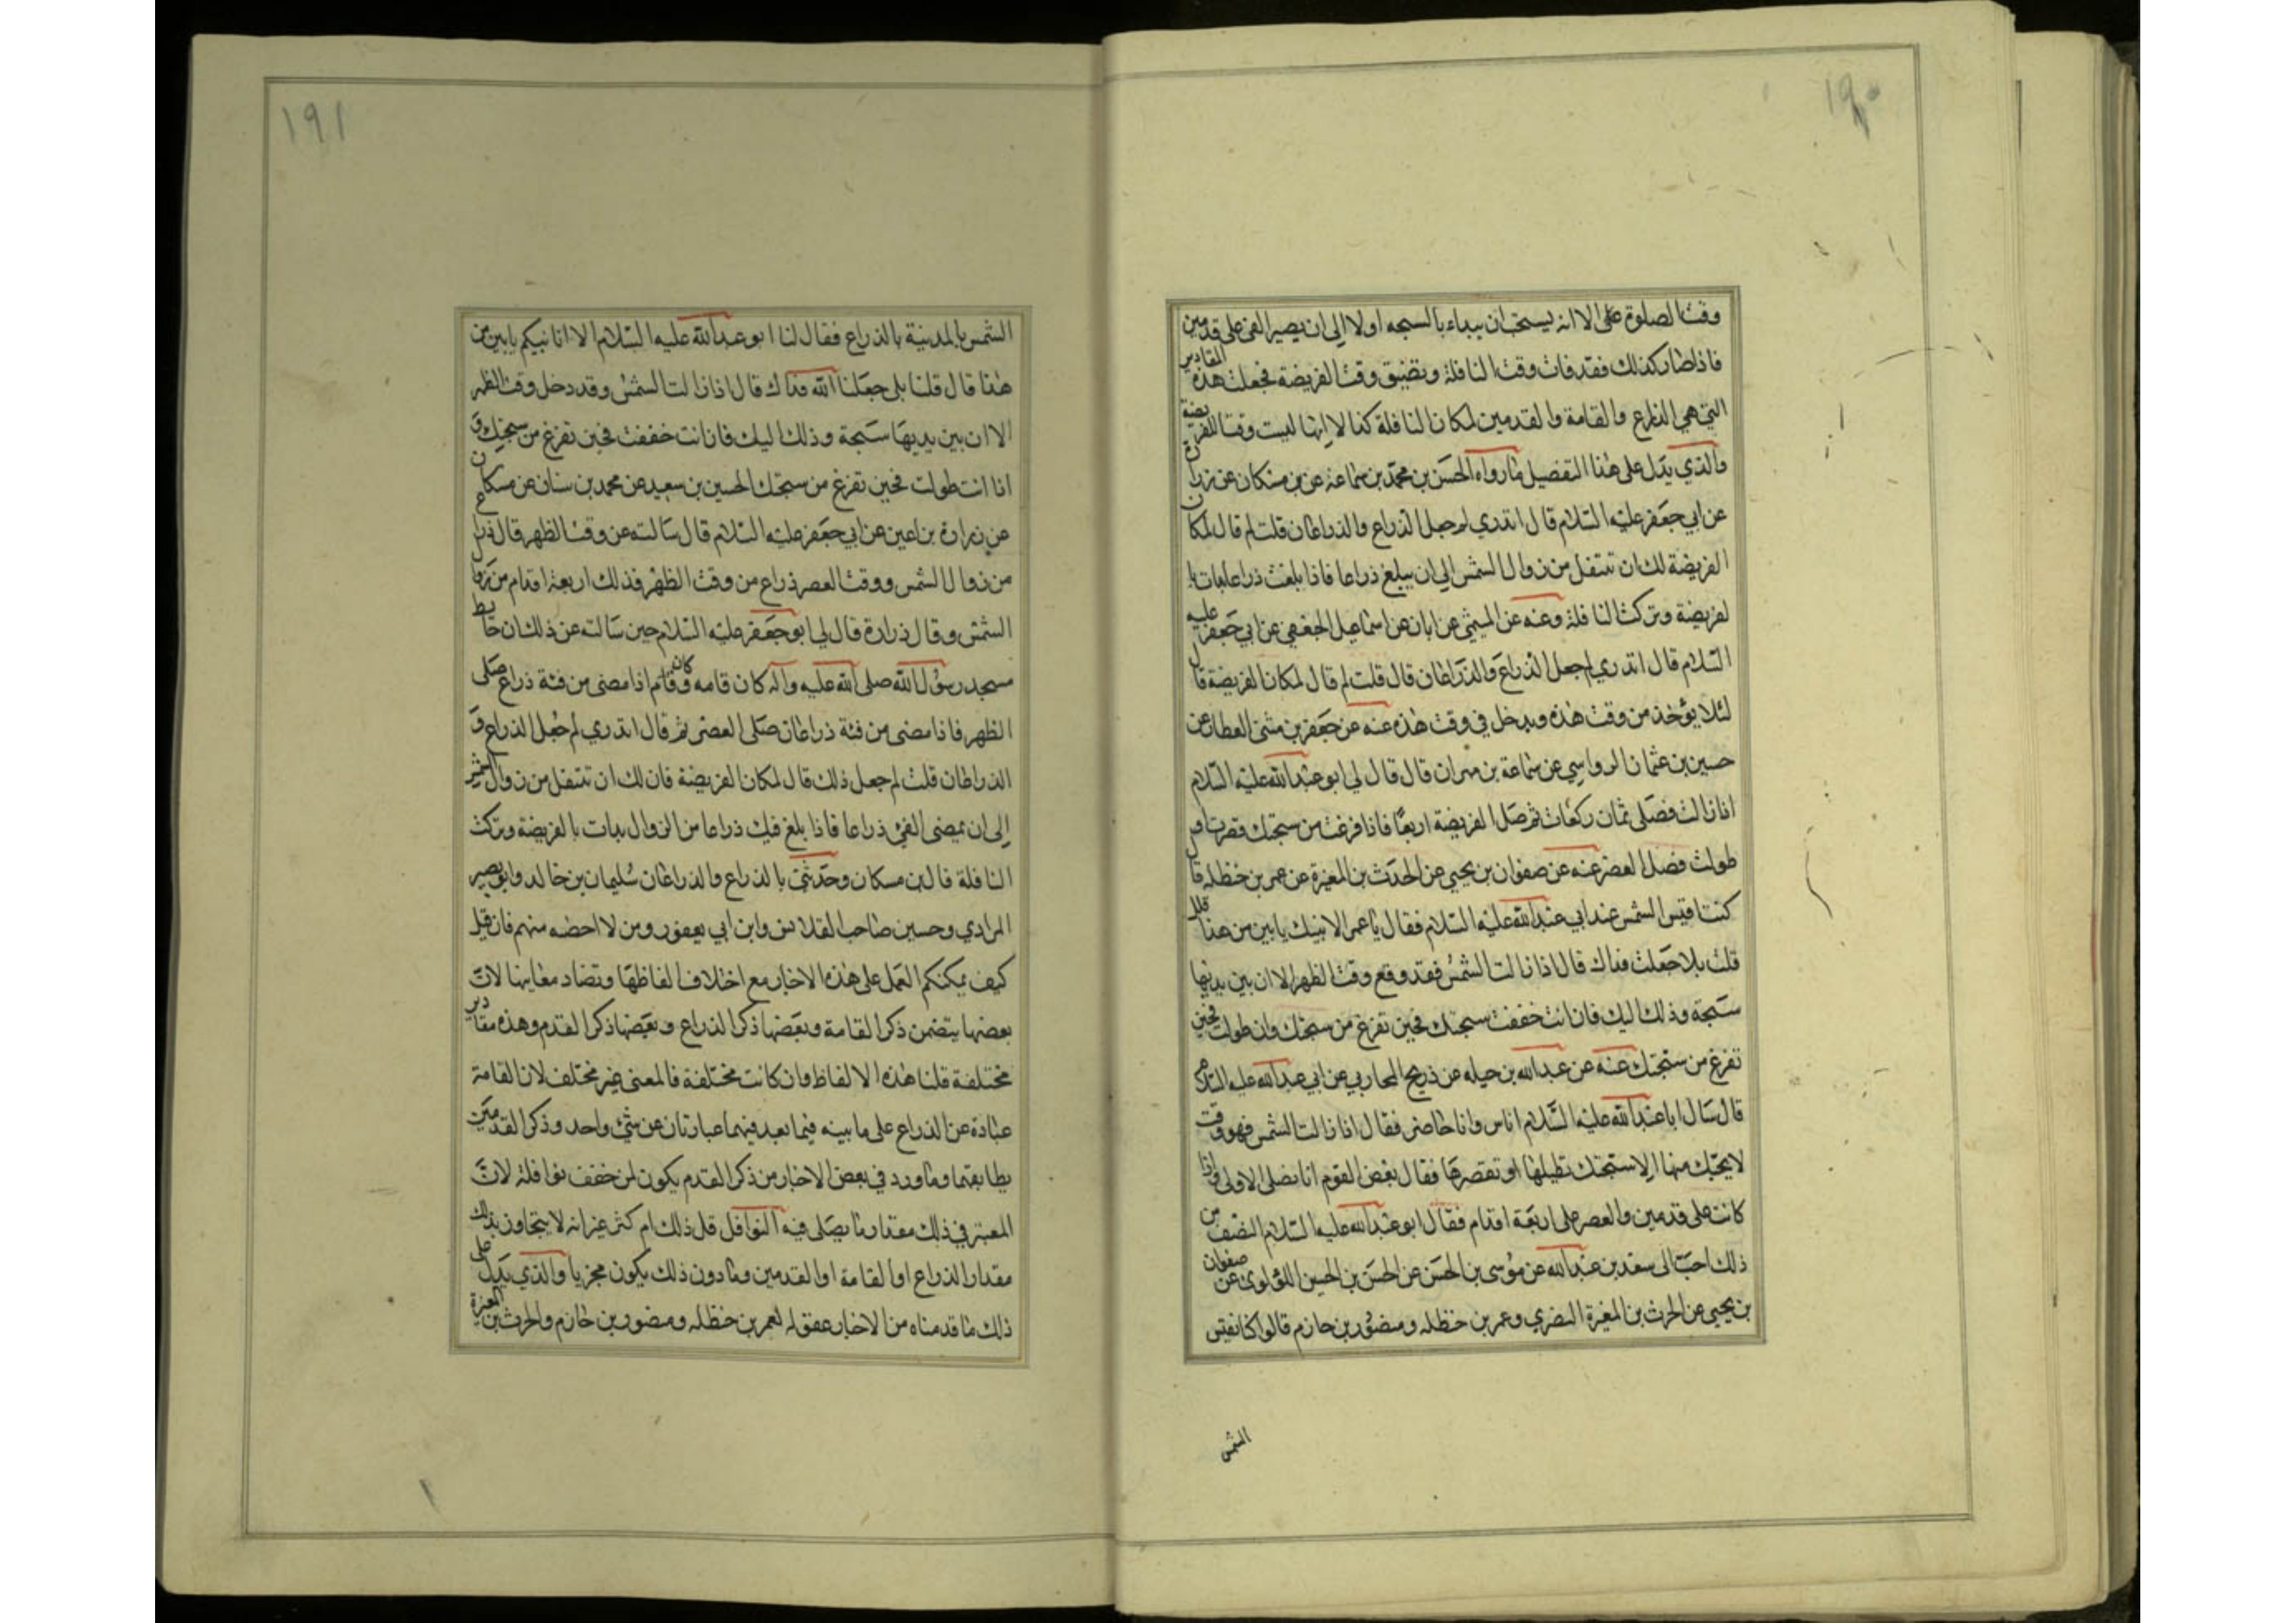 ١٩٠
وقت الصلوة على الا انه يستحب ان يبداء بالسبحه اولا الى ان يصير الفئ على قدمين
فاذا صار كذلك فقد فات وقت النافلة وتضيق وقت الفريضة فجعلت هذه المقادير
التي هي الذراع والقامة والقدمين لمكان النافلة كنا لا انها ليست وقتا للفريضة
والذي يدل على هذا التفصيل ما رواه الحسن بن محمد بن سماعة عن بن مسكان عن زرارة
عن ابي جعفر عليه السلام قال اتدري لم جعل الذراع والذراعان قلت لم قال لمكان
الفريضة لك ان تتنفل من زوال الشمس الى ان يبلغ ذراعا فاذا بلغت ذراعا بدات با
لفريضة وتركت النافلة وعنه عن الميثمي عن ابان عن اسماعيل الجعفي عن ابي جعفر عليه
السلام قال اتدري لم جعل الذراع والذراعان قال قلت لم قال لمكان الفريضة قال
لئلا يؤخذ من وقت هذه ويدخل في وقت هذه عنه عن جعفر بن مثنى العطار عن
حسين بن عثمان الرواسي عن سماعة بن مهران قال قال لي ابو عبد الله عليه السلام
اذا زالت فصلى ثمان ركعات ثم صل الفريضة اربعا فاذا فرغت من سبحتك قصرت او
طولت فصل العصر عنه عن صفوان بن يحيى عن الحدث بن المغيرة عن عمر بن حنظله قال
كنت اقيس الشمس عند ابي عبد الله عليه السلام فقال يا عمر الا انبئك بابين من هذا قال
قلت بلا جعلت فداك قال اذا زالت الشمس فقد وقع وقت الظهر الا ان بين يديها
سبحة وذلك اليك فان انت خففت سبحتك فحين تفرغ من سبحتك وان طولت فحين
تفرغ من سبحتك عنه عن عبد الله بن جبله عن ذريح المحاربي عن ابي عبد الله عليه السلام
قال سال ابا عبد الله عليه السلام اناس وانا حاضر فقال اذا زالت الشمس فهو وقت
لا يحبك منها الا سبحتك تطيلها او تقصرها فقال بعض القوم انا نصلى الاولى اذا
كانت على قدمين والعصر على اربعة اقدام فقال ابو عبد الله عليه السلام النصف من
ذلك احب الى سعد بن عبد الله عن موسى بن الحسن عن الحسن بن الحسين اللؤلوى عن صفوان
بن يحيى عن الحرث بن المغيرة النضري وعمر بن حنظله ومنصور بن حازم قالوا كنا نقيس
الشمس
١٩١
الشمس بالمدينة بالذراع فقال لنا ابو عبد الله عليه السلام الا انا نبيكم بابين من
هذا قال قلنا بلى جعلنا الله فداك قال اذا زالت الشمس وقد دخل وقت الظهر
الا ان بين يديها سبحة وذلك اليك فان انت خففت فحين تفرغ من سبحتك و
اذا انت طولت فحين تفرغ من سبحتك الحسين بن سعيد عن محمد بن سنان عن مسكان
عن زرارة بن اعين عن ابي جعفر عليه السلام قال سالته عن وقت الظهر قال ذراع
من زوال الشمس ووقت العصر ذراع من وقت الظهر فذلك اربعة اقدام من زوال
الشمس وقال زرارة قال لي ابو جعفر عليه السلام حين سالته عن ذلك ان حايط
مسجد رسول الله صلى الله عليه وآله كان قامه وكان اذا مضى من فئة ذراع صلى
الظهر فاذا مضى من فئة ذراعان صلى العصر ثم قال اتدري لم جعل الذراع و
الذراعان قلت لم جعل ذلك قال لمكان الفريضة فان لك ان تتنفل من زوال الشمس
الى ان يمضى الفئ ذراعا فاذا بلغ فيك ذراعا من الزوال بدات بالفريضة وتركت
النافلة قال بن مسكان وحدثني بالذراع والذراعان سليمان بن خالد وابو بصير
المرادي وحسين صاحب القلانس وابن ابي يعفور ومن لا احصه منهم فان قيل
كيف يمكنكم العمل على هذه الاخبار مع اختلاف الفاظها وتضاد معانيها لان
بعضها يتضمن ذكر القامة وبعضها ذكر الذراع وبعضها ذكر القدم وهذه مقادير
مختلفة قلنا هذه الالفاظ وان كانت مختلفة فالمعنى غير مختلف لان القامة
عبادة عن الذراع على ما بينه فيما بعد فهما عبارتان عن شئ واحد وذكر القدمين
يطابقهما وما ورد في بعض الاخبار من ذكر القدم يكون لمن خفف نوافله لان
المعتبر في ذلك مقدار ما يصلى فيه النوافل قل ذلك ام كثر غير انه لا يتجاوز بذلك
مقدار الذراع او القامة او القدمين وما دون ذلك يكون مجزيا والذي يدل على
ذلك ما قدمناه من الاخبار عقوله لعمر بن حنظله ومنصور بن حازم والحرث بن المغيرة